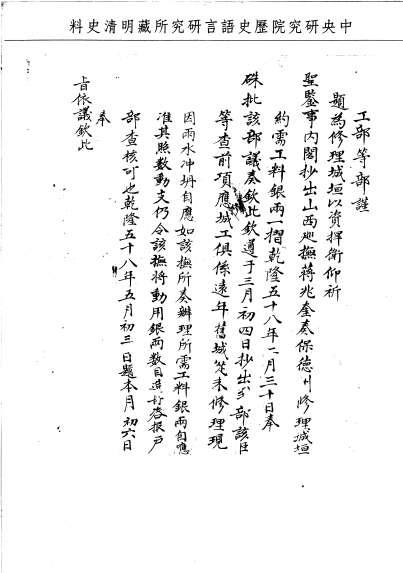 中央研究院歷史語言研究所藏明清史料
工部等部謹
題為修理城垣以資捍衛仰祈
聖鑒事內閣抄出山西巡撫蔣兆奎奏保德州修理城垣
約需工料銀兩一摺乾隆五十八年二月三十日奉
硃批該部議奏欽此欽遵于三月初四日抄出到部該臣
等查前項應城工俱係遠年舊城從未修理現
因雨水冲坍自應如該撫所奏辦理所需工料銀兩自應
准其照數動支仍令該撫將動用銀兩數目造冊咨報戶
部查核可也乾隆五十八年五月初三日題本月初六日
奉
旨依議欽此